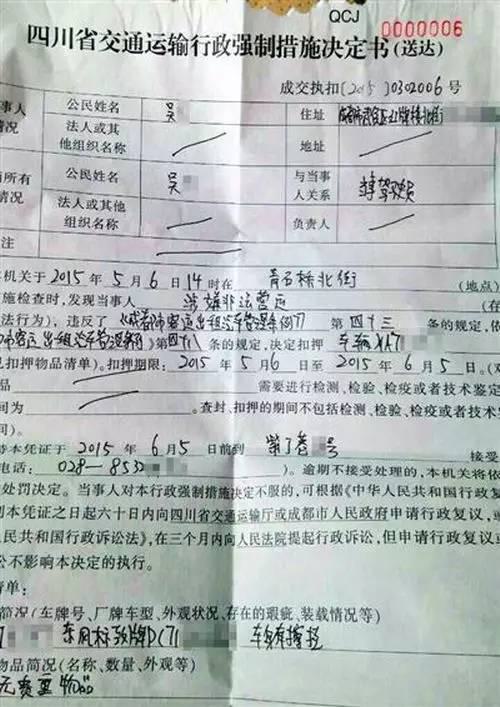 QCJ
0000006
四川省交通运输行政强制措施决定书(送达)
成交执扣〔2015〕0302006号
事人 公民姓名 吴 住址
情况 法人或其他组织名称 地址
所有 公民姓名 吴 与当事人关系
情况 法人或其他组织名称 负责人
注
机关于2015年5月6日14时在 青石桥北街 (地点)
施检查时,发现当事人 涉嫌非法营运
法行为),违反了《成都市客运出租汽车管理条例》第四十三 条的规定,依
市客运出租汽车管理条例》第四十八 条的规定,决定扣押 车辆
扣押物品清单)。扣押期限:2015年5月6日至2015年6月5日。(对
品 需要进行检测、检验、检疫或者技术鉴定
间为 。查封、扣押的期间不包括检测、检验、检疫或者技术
间)。
本凭证于2015年6月5日前到 号 接受
电话:028—8532 )。逾期不接受处理的,本机关将依
处罚决定。当事人对本行政强制措施决定不服的,可根据《中华人民共和国行政复
本凭证之日起六十日内向四川省交通运输厅或成都市人民政府申请行政复议,或
人民共和国行政诉讼法》,在三个月内向人民法院提起行政诉讼,但申请行政复议或
不影响本决定的执行。
清单:
简况(车牌号、厂牌车型、外观状况、存在的瑕疵、装载情况等)
东风标致牌DC71 车身有擦挂
物品简况(名称、数量、外观等)
无贵重物品